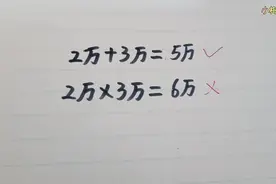 2万+3万=5万✓
2万×3万=6万×